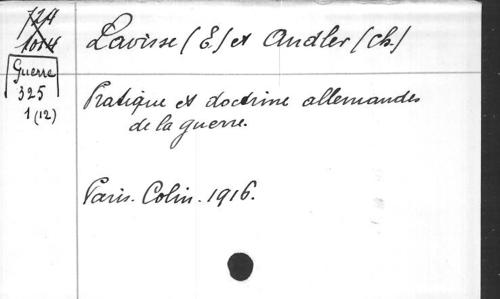 Lavisse (E) et Andler (Ch.)
Guerre
325
1 (12)
Pratique et doctrine allemandes
de la guerre.
Paris. Colin. 1916.